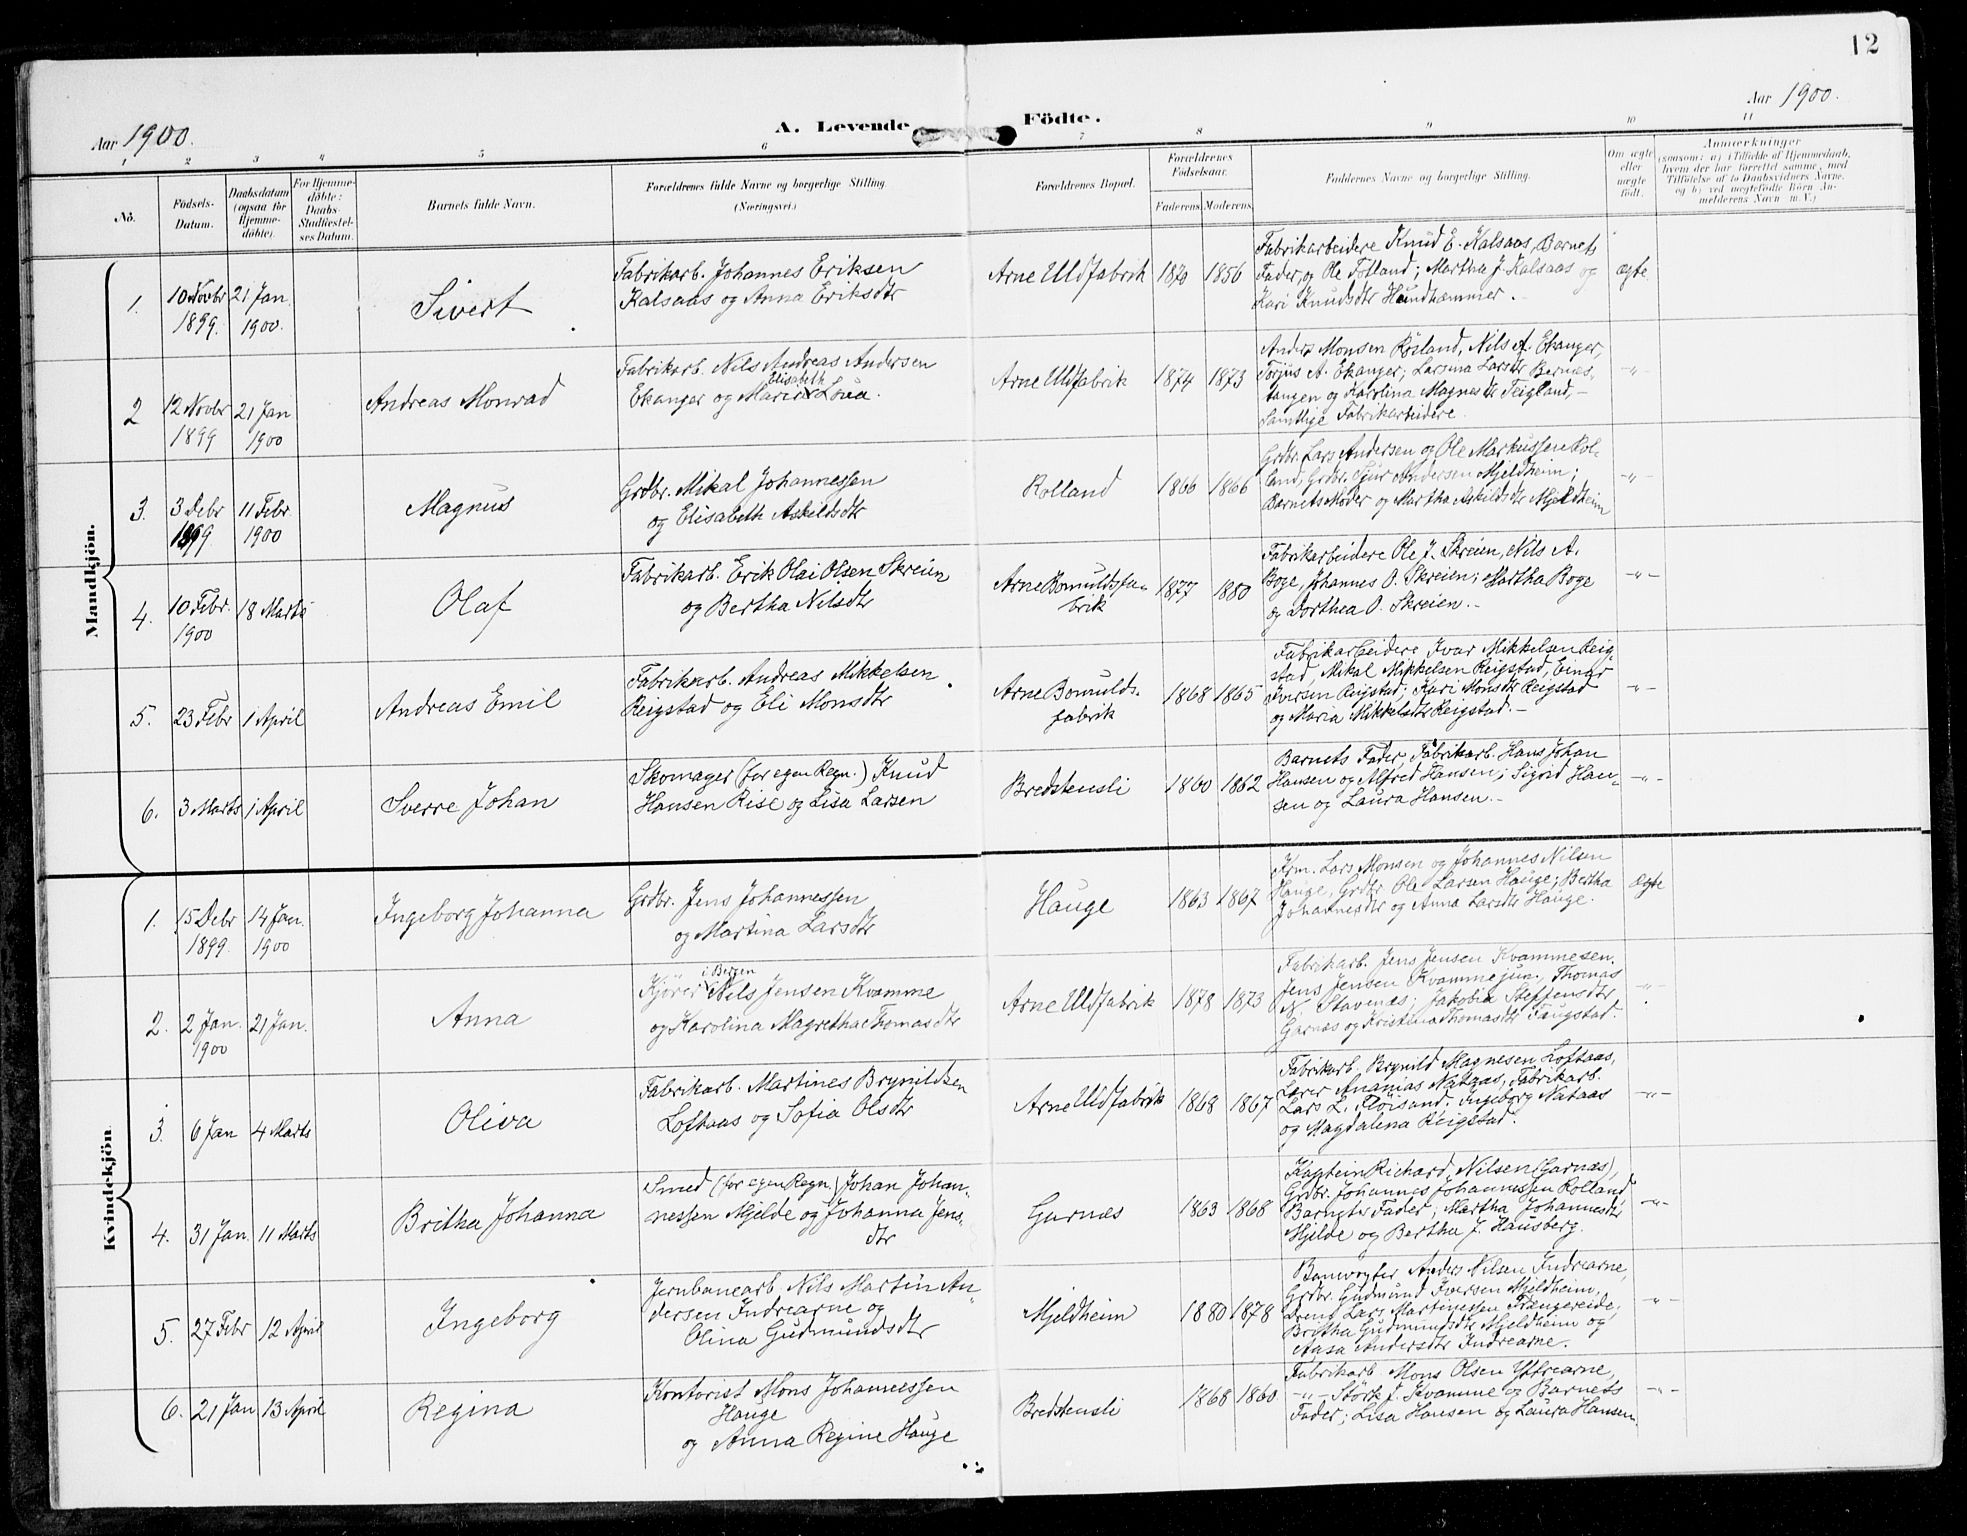 12
Aar 1900.
A. Levende Födte.
Aar 1900.
1 2 3 4 5 6 7 8 9 10 11
No.
Födsels-
Datum.
Daabsdatum
(ogsaa for
Hjemme-
döbte).
For Hjemme-
döbte:
Daabs-
Stadfæstel-
ses Datum.
Barnets fulde Navn.
Forældrenes fulde Navne og borgerlige Stilling.
(Næringsvei.)
Forældrenes Bopæl.
Forældrenes
Födselsaar.
Faderens. Moderens.
Faddernes Navne og borgerlige Stilling.
Om ægte
eller
uægte
födt.
Anmærkninger
(saasom: a) i Tilfælde af Hjemmedaab,
hvem der har forrettet samme, med
Tilföielse af to Daabsvidners Navne,
og b) ved uægtefödte Börn An-
melderens Navn m. V.)
Mandkjön.
1.
10 Novbr
1899.
21 Jan.
1900.
Sivert
Fabrikarb. Johannes Eriksen
Kalsaas og Anna Eriksdtr
Arne Uldfabrik
1870
1856
Fabrikarbeidere Knud E. Kalsaas, Barnets
Fader, og Ole Tolland; Martha J. Kalsaas og
Kari Knudsdtr Hundhammer.
ægte
2
12 Novbr
1899
21 Jan
1900
Andreas Monrad
Fabrikarb. Nils Andreas Andersen
Elisabeth
Ekanger og Marie Lova.
Arne Uldfabrik
1874
1873
Anders Monsen Röiland, Nils A. Ekanger,
Torjus A. Ekanger; Larsina Larsdtr Bernæs-
tangen og Karolina Magnesdtr Teigland,-
Samtlige Fabrikarbeidere.
-"-
3.
3 Debr
1899.
11 Febr.
1900
Magnus
Grdbr. Mikal Johannessen
og Elisabeth Askildsdtr
Rolland
1866
1866
Grdbr. Lars Andersen og Ole Markussen Rol-
land, Grdbr. Sjur Andersen Mjeldheim;
Barnets Moder og Martha Askildsdtr Mjeldheim
-"-
4.
10 Febr.
1900
18 Marts
Olaf
Fabrikarb. Erik Olai Olsen Skreien
og Bertha Nilsdtr
Arne Bomuldsfa-
brik
1877
1880
Fabrikarbeidere Ole J. Skreien, Nils A.
Boge, Johannes O. Skreien; Martha Boge
og Dorthea O. Skreien.-
-"-
5.
23 Febr
1 April
Andreas Emil
Fabrikarb. Andreas Mikkelsen
Reigstad og Eli Monsdtr
Arne Bomulds-
fabrik
1868
1865
Fabrikarbeidere Ivar Mikkelsen Reig-
stad, Mikal Mikkelsen Reigstad, Einar
Iversen Reigstad; Kari Monsdtr Reigstad
og Maria Mikkelsdtr Reigstad.-
-"-
6.
3 Marts
1 April
Sverre Johan
Skomager (for egen Regn.) Knud
Hansen Rise og Lisa Larsen
Bredstensli
1860
1862
Barnets Fader, Fabrikarb. Hans Johan
Hansen og Alfred Hansen; Sigrid Han-
sen og Laura Hansen.-
-"-
Kvindekjön.
1.
15 Debr
1899.
14 Jan.
1900
Ingeborg Johanna
Grdbr. Jens Johannessen
og Martina Larsdtr
Hauge
1863
1867
Krm. Lars Monsen og Johannes Nilsen
Hauge, Grdbr. Ole Larsen Hauge; Bertha
Johannesdtr og Anna Larsdtr Hauge.
ægte
2.
2 Jan.
1900
21 Jan.
Anna
i Bergen
Kjörer Nils Jensen Kvamme
og Karolina Magrethae Thomasdtr
Arne Uldfabrik
1878
1873
Fabrikarb. Jens Jensen Kvamme sen.
Jens Jensen Kvamme jun., Thomas
N. Stavenæs; Jakobia Steffensdtr
Garnæs og Kristina Thomasdtr Fangstad.
-"-
3.
6 Jan
4 Marts
Oliva
Fabrikarb. Martines Brynildsen
Loftaas og Sofia Olsdtr
Arne Uldfabrik
1868
1867
Fabrikarb. Brynild Magnesen Loftaas,
Lærer Ananias Nataas, Fabrikarb.
Lars L. Flöisand. Ingeborg Nataas
og Magdalena Reigstad.
-"-
4.
31 Jan.
11 Marts
Britha Johanna
Smed (for egen Regn.) Johan Johan-
nessen Mjelde og Johanna Jens-
dtr
Garnæs
1863
1868
Kaptein Richard Nilsen (Garnæs),
Grdbr. Johannes Johannessen Rolland
Barnets Fader; Martha Johannesdtr
Mjelde og Bertha J. Hausberg.
-"-
5.
27 Febr
12 April
Ingeborg
Jernbanearb. Nils Martin An-
dersen Indrearne og
Olina Gudmundsdtr
Mjeldheim
1880
1878
Banevogter Anders Nilsen Indrearne,
Grdbr. Gudmund Iversen Mjeldheim,
Dreng Lars Martinessen Trængereide;
Britha Gudmundsdtr Mjeldheim og
Aasa Andersdtr Indrearne.
-"-
6.
21 Jan
13 April
Regina
Kontorist Mons Johannessen
Hauge
og Anna Regine Hauge
Bredstensli
1868
1860
Fabrikarb. Mons Olsen Yttrearne,
-"- Störk J. Kvamme og Barnets
Fader; Lisa Hansen og Laura Hansen.
-"-